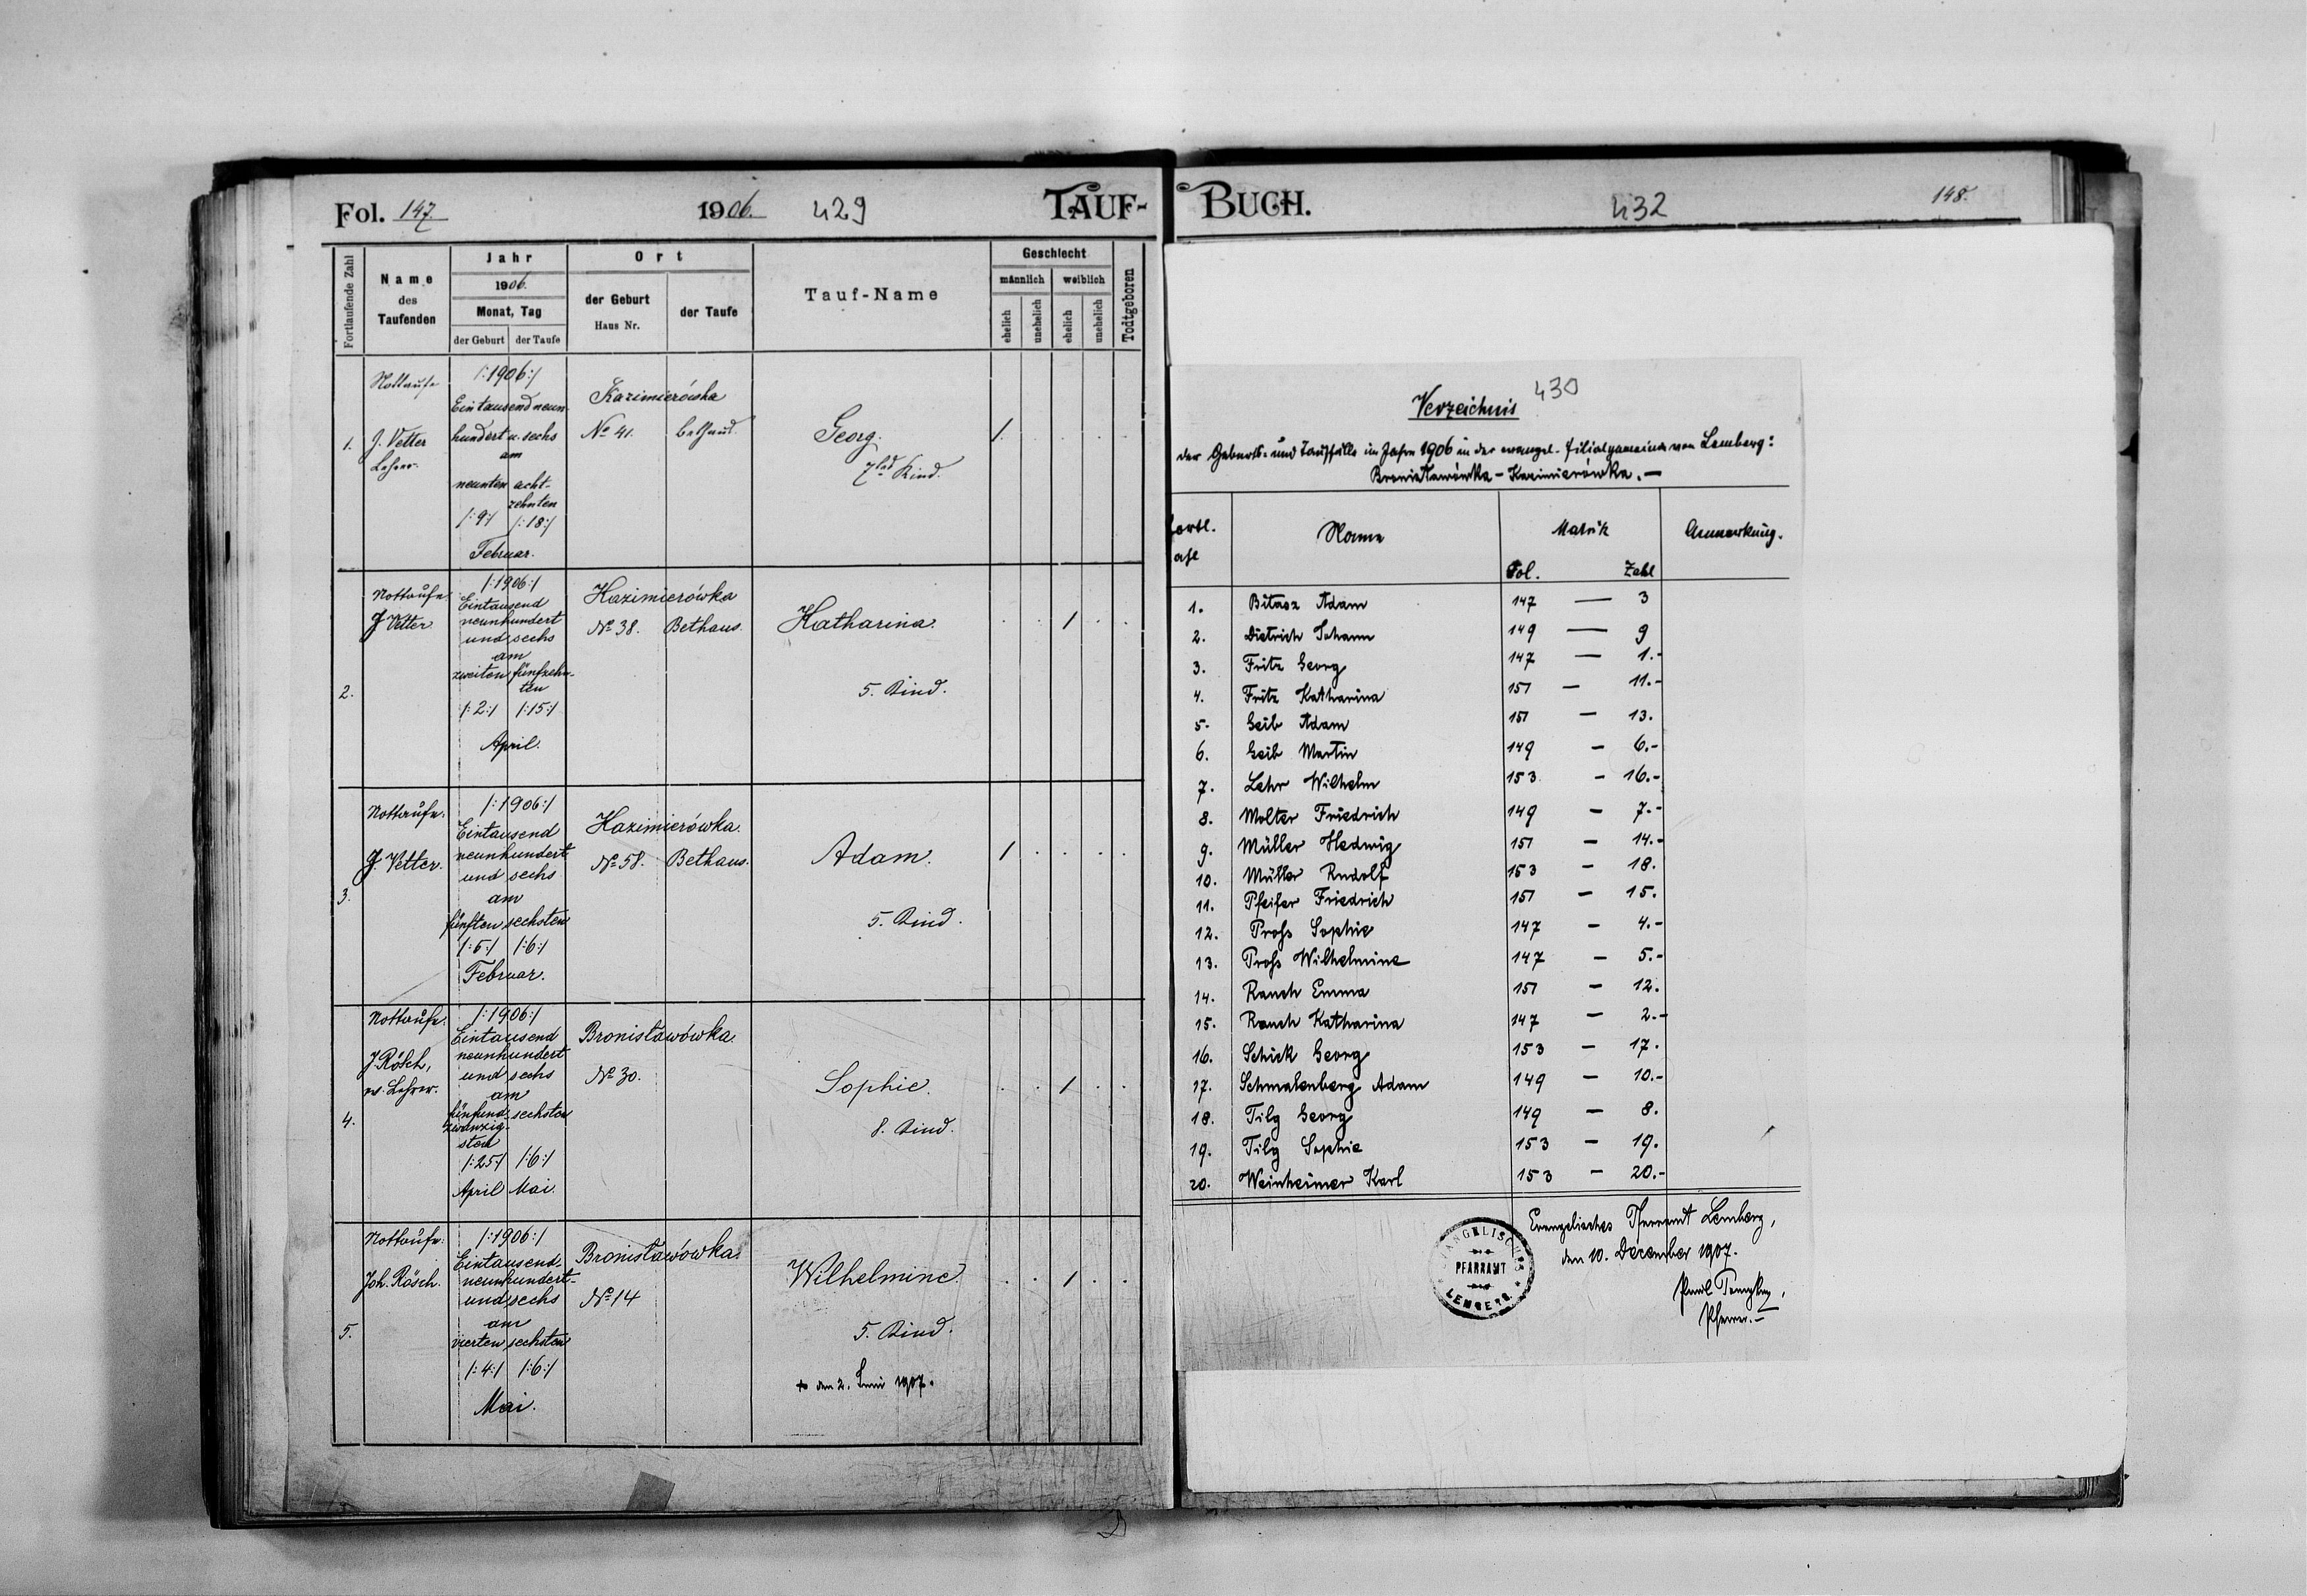 Fol. 147
1906.
429
TAUF-
Fortlaufende Zahl
Name
des
Taufenden
Jahr
1906.
Monat, Tag
der Geburt
der Taufe
Ort
der Geburt
Haus Nr.
der Taufe
Tauf-Name
Geschlecht
männlich
weiblich
ehelich
unehelich
ehelich
unehelich
Todtgeboren
1.
Nottaufe
J. Vetter
Lehrer.
/:1906:/
Eintausend neun
hundert u. sechs
am
neunten acht-
zehnten
/:9:/ /:18:/
Februar.
Kazimierówka
No 41. Bethaus.
Georg.
7tes Kind.
/.
2.
Nottaufe.
J Vetter.
/:1906:/
Eintausend
neunhundert
und sechs
am
zweiten fünfzehn-
ten
/:2:/ /:15:/
April.
Kazimierówka
No 38. Bethaus.
Katharina.
5. Kind.
/
3.
Nottaufe.
J. Vetter.
/:1906:/
Eintausend
neunhundert
und sechs
am
fünften sechsten
/:5:/ /:6:/
Februar.
Kazimierówka.
No 58. Bethaus.
Adam.
5. Kind.
/
4.
Nottaufe.
J. Rösch,
ev. Lehrer.
/:1906:/
Eintausend
neunhundert
und sechs
am
fünfund- sechsten
zwanzig-
sten
/:25:/ /:6:/
April Mai.
Bronisławówka.
No 30.
Sophie.
8. Kind.
/
5.
Nottaufe.
Joh. Rösch.
/:1906:/
Eintausend
neunhundert-
und sechs
am
vierten sechsten
/:4:/ /:6:/
Mai.
Bronisławówka.
No 14
Wilhelmine.
5. Kind.
† den 2. Juni 1907.
/
BUCH.
432
148.
430
Verzeichnis
der Geburts- und Tauffälle im Jahre 1906 in der evangel. Filialgemeinde von Lemberg:
Bronisławówka – Kazimierówka. –
Name
Matrik
Fol. Zahl
Anmerkung.
1. Bitasz Adam 147 — 3
2. Dietrich Johann 149 — 9
3. Fritz Georg 147 — 1.-
4. Fritz Katharina 151 — 11.-
5. Geib Adam 151 — 13.
6. Geib Martin 149 — 6.-
7. Lehr Wilhelm 153 - 16.-
8. Molter Friedrich 149 — 7.-
9. Müller Hedwig 151 — 14.-
10. Müller Rudolf 153 — 18.
11. Pfeifer Friedrich 151 — 15.
12. Proß Sophie 147 — 4.-
13. Proß Wilhelmine 147 — 5.-
14. Rauch Emma 151 — 12.
15. Rauch Katharina 147 — 2.-
16. Schick Georg 153 — 17.
17. Schmalenberg Adam 149 — 10.-
18. Tilg Georg 149 — 8.
19. Tilg Sophie 153 — 19.
20. Weinheimer Karl 153 — 20.-
Evangelisches Pfarramt Lemberg,
den 10. Dezember 1907.
Pfarrer. –
EVANGELISCHES
PFARRAMT
LEMBERG.